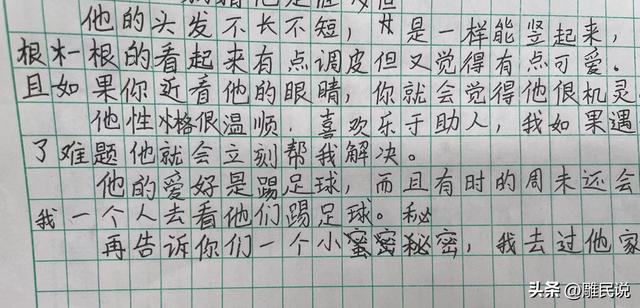 他的头发不长不短，但是一样能竖起来，
根根的看起来有点调皮但又觉得有点可爱。
且如果你近看他的眼睛，你就会觉得他很机灵
他性格很温顺，喜欢乐于助人，我如果遇
了难题他就会立刻帮我解决。
他的爱好是踢足球，而且有时的周未还会
我一个人去看他们踢足球。秘
再告诉你们一个小蜜密秘密，我去过他家
头条 @雕民说